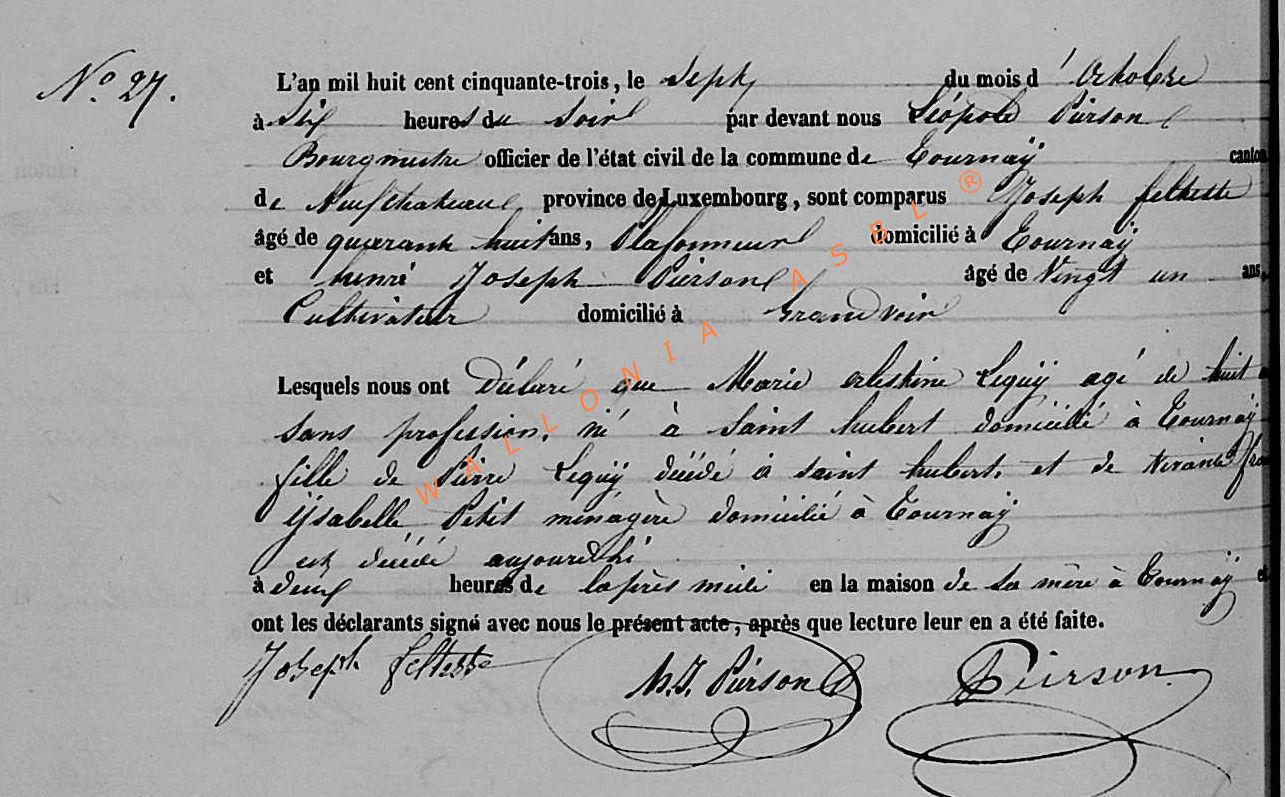 N.º 27.
L'an mil huit cent cinquante-trois, le sept du mois d' Octobre
à Six heures du soir par devant nous Léopold Pierson
Bourgmestre officier de l'état civil de la commune de Tournaÿ canton
de Neufchateau, province de Luxembourg, sont comparus Joseph feltesse
âgé de quarante huit ans, Plafonneur domicilié à Tournaÿ
et henri Joseph Pierson âgé de Vingt un ans,
Cultivateur domicilié à Grandvoir
Lesquels nous ont Déclaré que Marie Celestine Lequÿ agé de huit
sans profession, né à Saint hubert domicilié à Tournaÿ
fille de Pierre Lequÿ décédé à saint hubert, et de
Ysabelle Petit ménagère domicilié à Tournaÿ
est décédé aujourdhi
à deux heures de laprès midi en la maison de sa mère à Tournaÿ et
ont les déclarants signé avec nous le présent acte, après que lecture leur en a été faite.
Joseph feltesse H.J. Pierson Pierson
WALLONIA ASBL ®